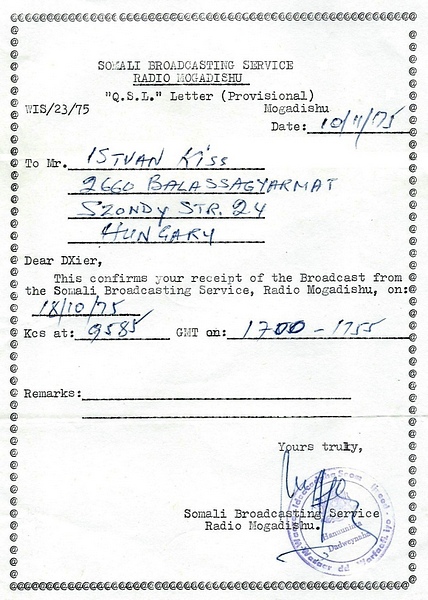 SOMALI BROADCASTING SERVICE
RADIO MOGADISHU
"Q.S.L." Letter (Provisional)
WIS/23/75
Mogadishu
Date: 10/11/75
To Mr. ISTVAN KISS
2660 BALASSAGYARMAT
SZONDY STR. 24
HUNGARY
Dear DXier,
This confirms your receipt of the Broadcast from
the Somali Broadcasting Service, Radio Mogadishu, on:
18/10/75
Kcs at: 9585 GMT on: 1700 - 1755
Remarks:
Yours truly,
Somali Broadcasting Service
Radio Mogadishu.